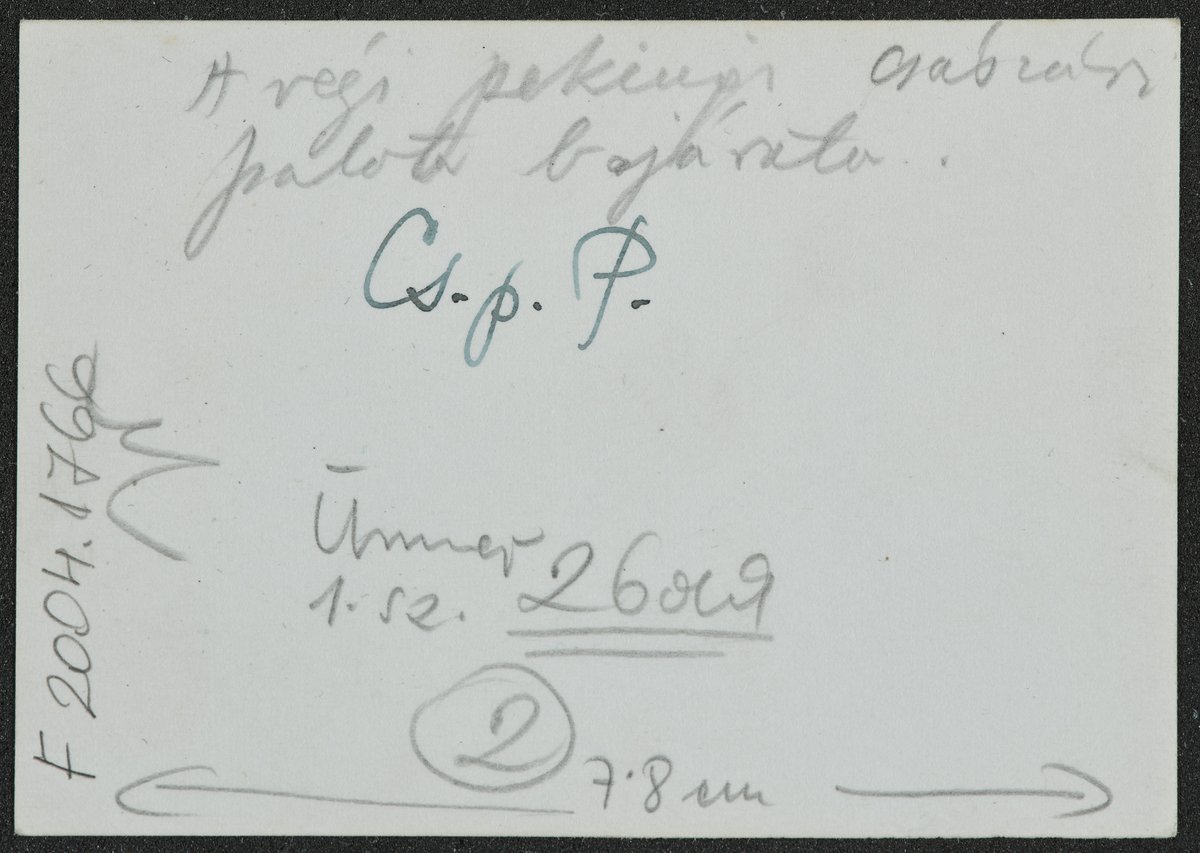 A régi pekingi császári
palota bejárata.
Cs. p. P.
F 2004.1766
1. sz. 26
2
7.8 cm